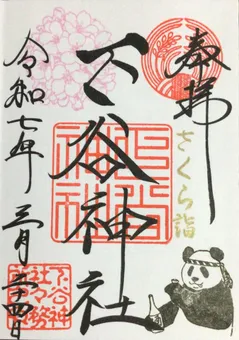 奉拝
さくら詣
下谷神社
下谷神社
下谷神
社社務
所之印
令和七年 三月 二十四日